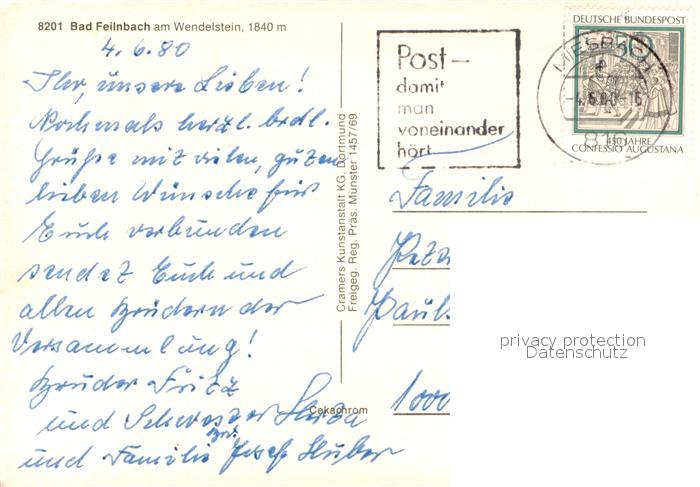 8201 Bad Feilnbach am Wendelstein, 1840 m
4.6.80
Ihr, unsere Lieben!
Nochmals herzl. brdl.
Grüße mit vielen, guten
lieben Wünsche für
Euch verbunden
sendet Euch und
allen Brüdern der
Versammlung!
Bruder Fritz
und Schwester
Brd.
und Familie Josef Huber
Cramers Kunstanstalt KG. Dortmund
Freigeg. Reg. Präs. Münster 1457/69
Cekachrom
Post-
damit
man
voneinander
hört
MIESBACH
-4.6.80-16
DEUTSCHE BUNDESPOST
50
450 JAHRE
CONFESSIO AUGUSTANA
Familie
1000
privacy protection
Datenschutz